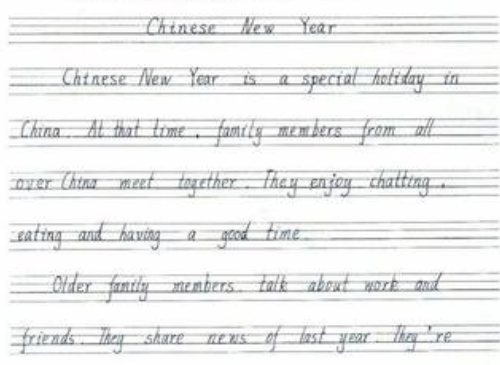 Chinese New Year
Chinese New Year is a special holiday in
China. At that time, family members from all
over China meet together. They enjoy chatting,
eating and having a good time.
Older family members. talk about work and
friends. They share news of last year. They're